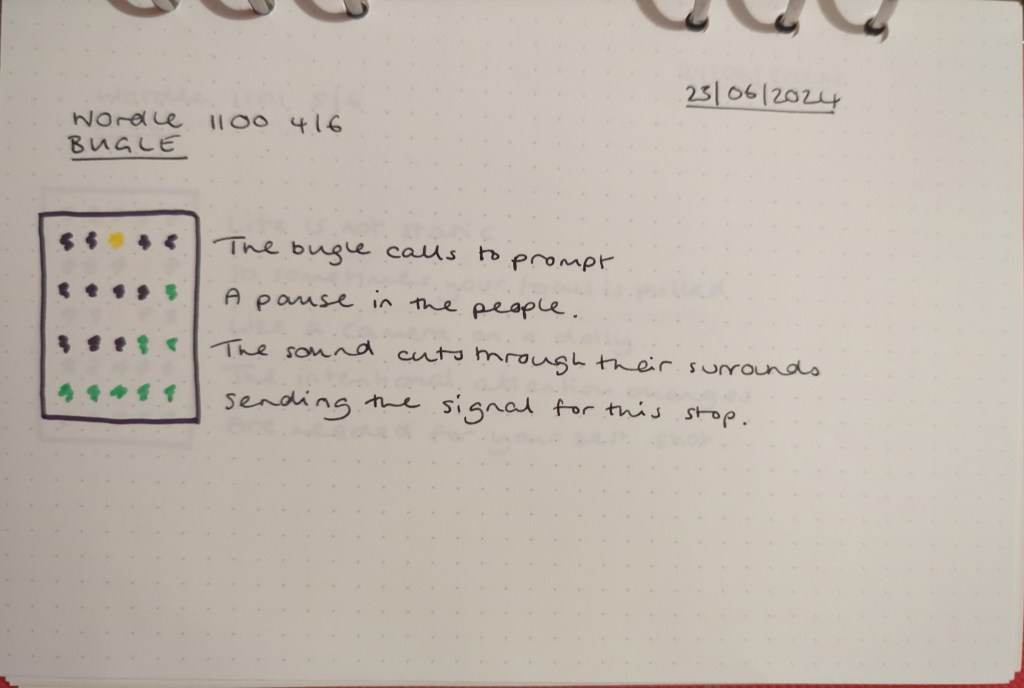 23/06/2024
Wordle 1100 4/6
BUGLE
The bugle calls to prompt
A pause in the people.
The sound cuts through their surrounds
sending the signal for this stop.